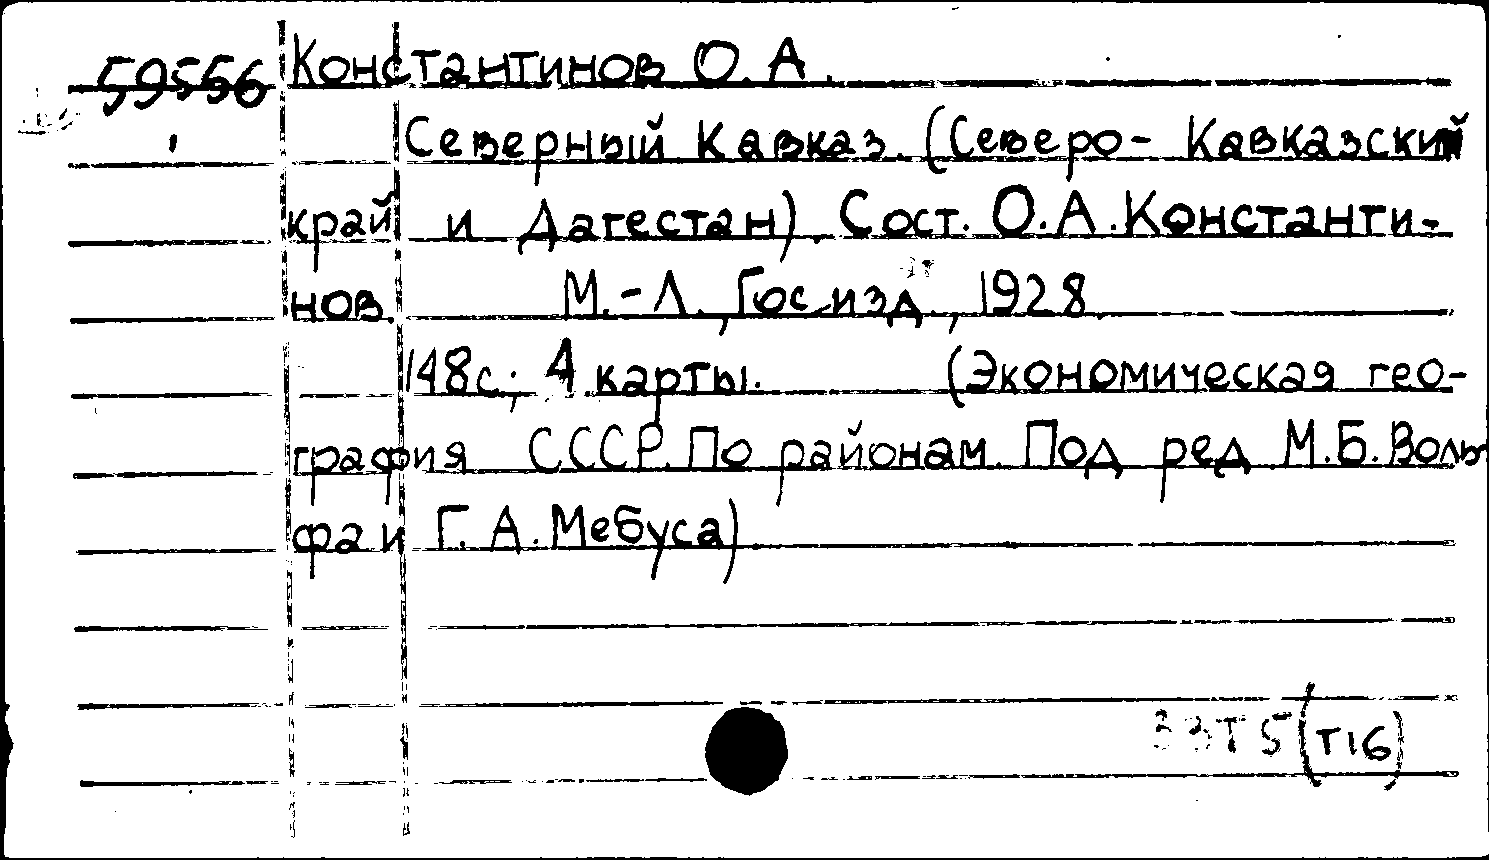 59556 Константинов О. А.
Северный Кавказ. (Северо-Кавказский
край и Дагестан). Сост. О.А.Константи-
нов. М.-Л., Гос.изд., 1928.
148с.; 4 карты. (Экономическая гео-
графия СССР. По районам. Под ред. М.Б.Воль-
фа и Г.А.Мебуса)
33Т5(Т16)